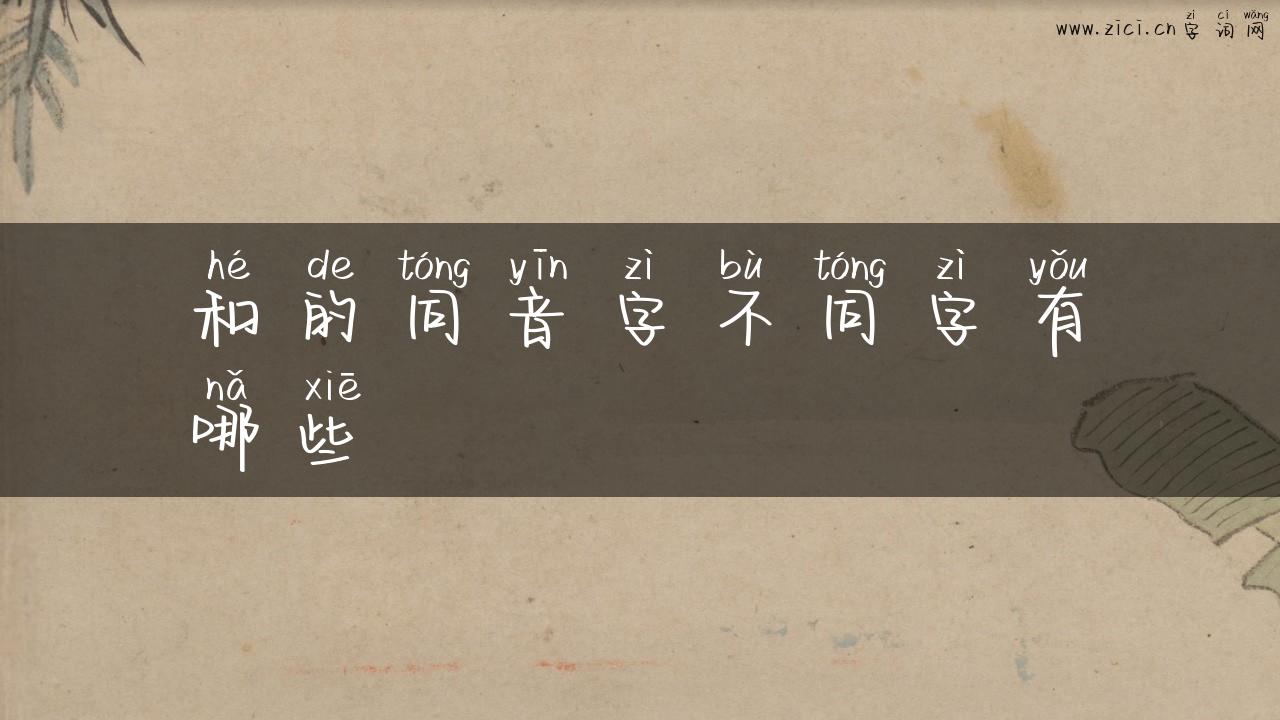 zì cí wǎng
www.zici.cn 字 词 网
hé de tóng yīn zì bù tóng zì yǒu
和 的 同 音 字 不 同 字 有
nǎ xiē
哪 些